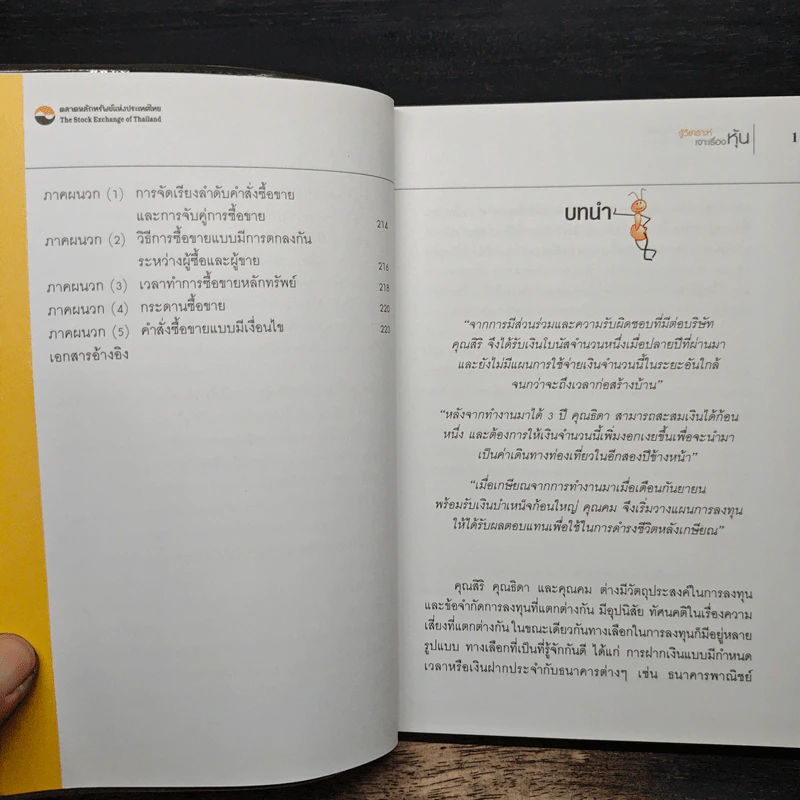 ตลาดหลักทรัพย์แห่งประเทศไทย
The Stock Exchange of Thailand
ภาคผนวก (1) การจัดเรียงลำดับคำสั่งซื้อขาย
และการจับคู่การซื้อขาย 214
ภาคผนวก (2) วิธีการซื้อขายแบบมีการตกลงกัน
ระหว่างผู้ซื้อและผู้ขาย 216
ภาคผนวก (3) เวลาทำการซื้อขายหลักทรัพย์ 218
ภาคผนวก (4) กระดานซื้อขาย 220
ภาคผนวก (5) คำสั่งซื้อขายแบบมีเงื่อนไข 223
เอกสารอ้างอิง
รู้วิเคราะห์
เจาะเรื่อง หุ้น 1
บทนำ
“จากการมีส่วนร่วมและความรับผิดชอบที่มีต่อบริษัท
คุณสิริ จึงได้รับเงินโบนัสจำนวนหนึ่งเมื่อปลายปีที่ผ่านมา
และยังไม่มีแผนการใช้จ่ายเงินจำนวนนี้ในระยะอันใกล้
จนกว่าจะถึงเวลาก่อสร้างบ้าน”
“หลังจากทำงานมาได้ 3 ปี คุณธิดา สามารถสะสมเงินได้ก้อน
หนึ่ง และต้องการให้เงินจำนวนนี้เพิ่มงอกเงยขึ้นเพื่อจะนำมา
เป็นค่าเดินทางท่องเที่ยวในอีกสองปีข้างหน้า”
“เมื่อเกษียณจากการทำงานมาเมื่อเดือนกันยายน
พร้อมรับเงินบำเหน็จก้อนใหญ่ คุณคม จึงเริ่มวางแผนการลงทุน
ให้ได้รับผลตอบแทนเพื่อใช้ในการดำรงชีวิตหลังเกษียณ”
คุณสิริ คุณธิดา และคุณคม ต่างมีวัตถุประสงค์ในการลงทุน
และข้อจำกัดการลงทุนที่แตกต่างกัน มีอุปนิสัย ทัศนคติในเรื่องความ
เสี่ยงที่แตกต่างกัน ในขณะเดียวกันทางเลือกในการลงทุนก็มีอยู่หลาย
รูปแบบ ทางเลือกที่เป็นที่รู้จักกันดี ได้แก่ การฝากเงินแบบมีกำหนด
เวลาหรือเงินฝากประจำกับธนาคารต่างๆ เช่น ธนาคารพาณิชย์